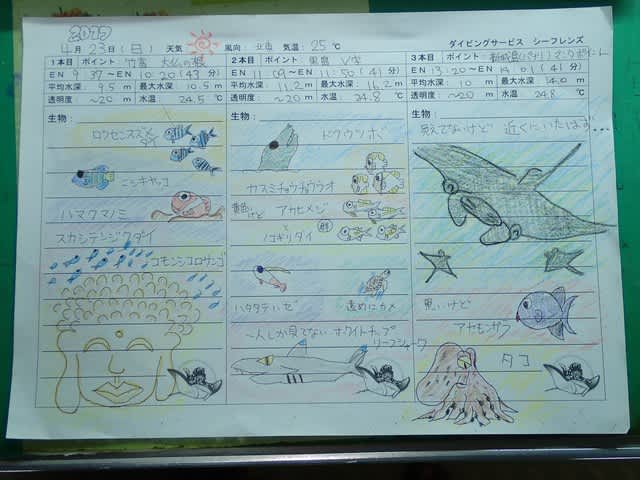 2017
4月 23日(日) 天気 風向 北東 気温: 25 ℃
ダイビングサービス シーフレンズ
1本目 ポイント 竹富 大仏の根
EN 9:37 ～EN 10:20 (43分)
平均水深: 9.5 m 最大水深 10.5 m
透明度 ～20 m 水温 24.5 ℃
生物:
ロクセンスズメダイ
ニシキヤッコ
ハマクマノミ
スカシテンジクダイ
コモンシコロサンゴ
2本目 ポイント 黒島 V字
EN 11:09 ～EN 11:50 (41分)
平均水深: 11.2 m 最大水深 16.2 m
透明度 ～20 m 水温 24.8 ℃
生物:
ドクウツボ
カスミチョウチョウウオ
黄色いけど アカヒメジ
ノコギリダイ
ハタタテハゼ
遠めにカメ
一人しか見てないホワイトチップ
リーフシャーク
3本目 ポイント 新城島(パナリ) マンタポイント
EN 13:20 ～EN 14:01 (41分)
平均水深: 10 m 最大水深 14.0 m
透明度 ～20 m 水温 24.8 ℃
生物:
見えてないけど 近くにいたはず…
黒いけど
アカモンガラ
タコ